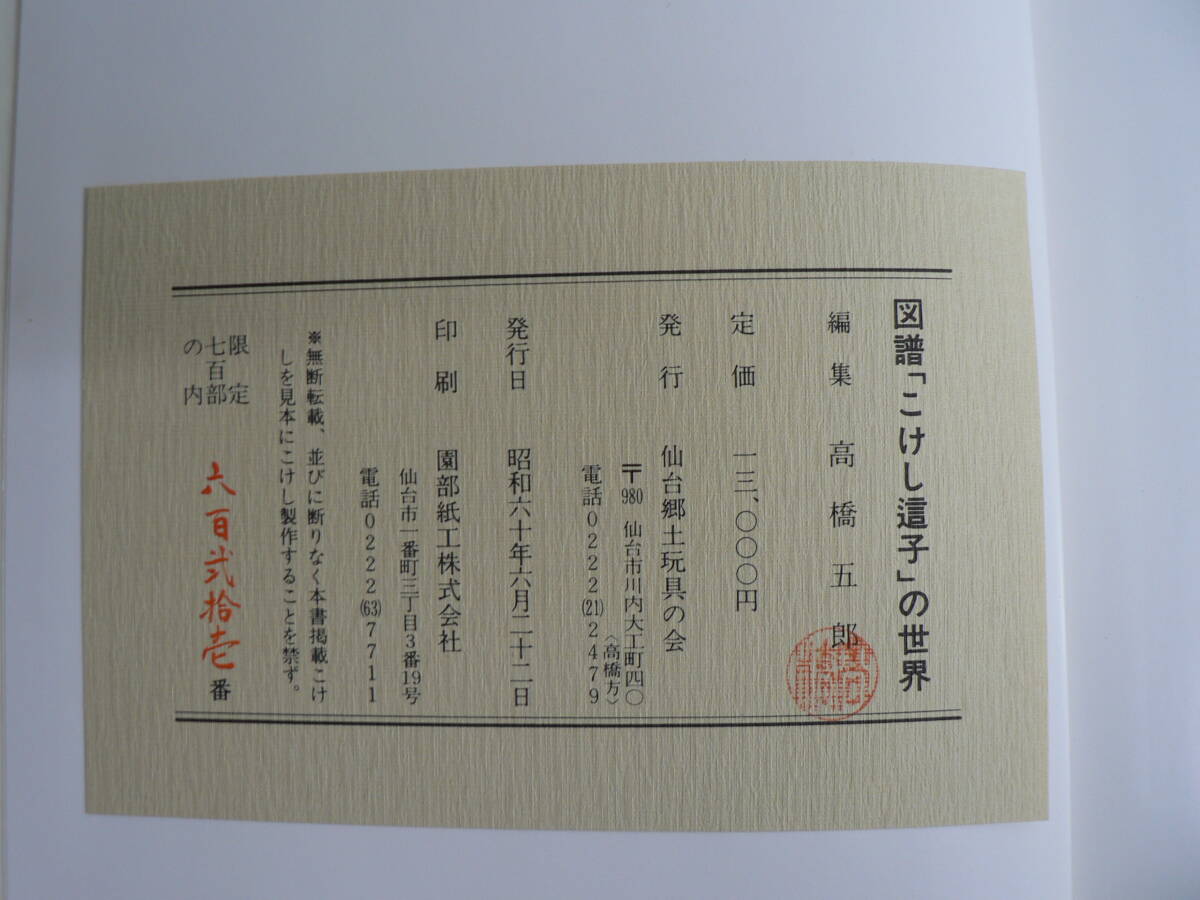 図譜「こけし這子」の世界
編集 高橋五郎
定価 一三、〇〇〇円
発行 仙台郷土玩具の会
〒980 仙台市川内大工町四〇
〈高橋方〉
電話0222(21)2479
発行日 昭和六十年六月二十二日
印刷 園部紙工株式会社
仙台市一番町三丁目3番19号
電話0222(63)7711
※無断転載、並びに断りなく本書掲載こけ
しを見本にこけし製作することを禁ず。
限定
七百部
の内
六百弐拾壱番